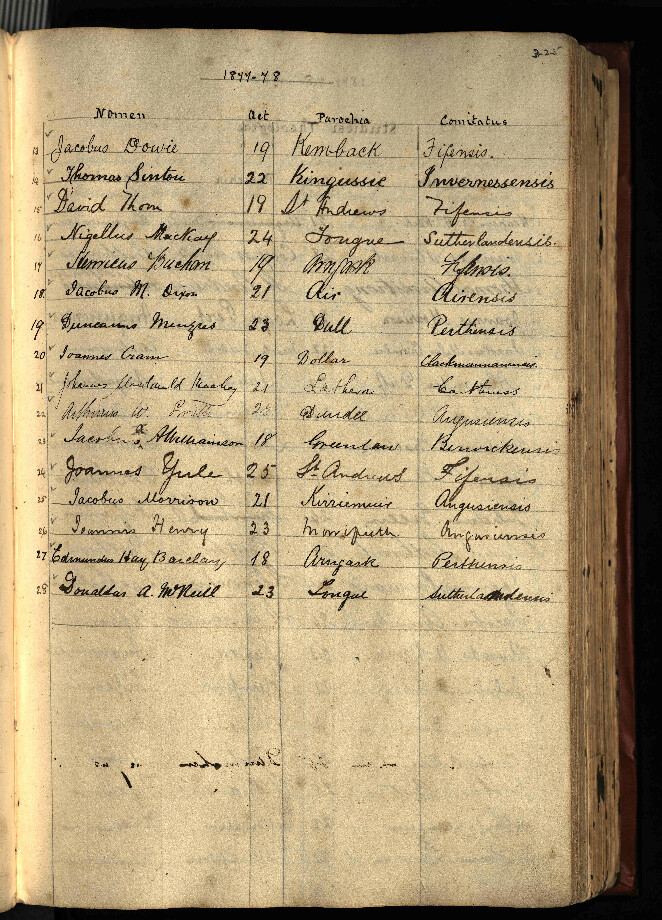 325
1877-78
Nomen Aet Parochia Comitatus
13 Jacobus Dowie 19 Kemback Fifensis.
14 Thomas Sinton 22 Kingussie Invernessensis
15 David Thom 19 St Andrews Fifensis
16 Nigellus MacKay 24 Tongue Sutherlandensis.
17 Buchan 19 Arngask
18 Jacobus M. Dixon 21 Air Airensis
19 Duncanus Menzies 23 Dull Perthensis
20 Joannes Cram 19 Dollar Clackmannanensis
21 Mackay 21 Latheron Caithness
22 Arthurus W. Smith 23 Dundee Angusiensis
23 Jacobus A Williamson 18 Greenlaw Berwickensis
24 Joannes Yule 25 St. Andrews Fifensis
25 Jacobus Morrison 21 Kirriemuir Angusiensis
26 Joannis Henry 23 Monifieth Angusiensis
27 Edmundus Hay Barclay 18 Arngask Perthensis
28 Donaldus A. McNeill 23 Tongue Sutherlandensis